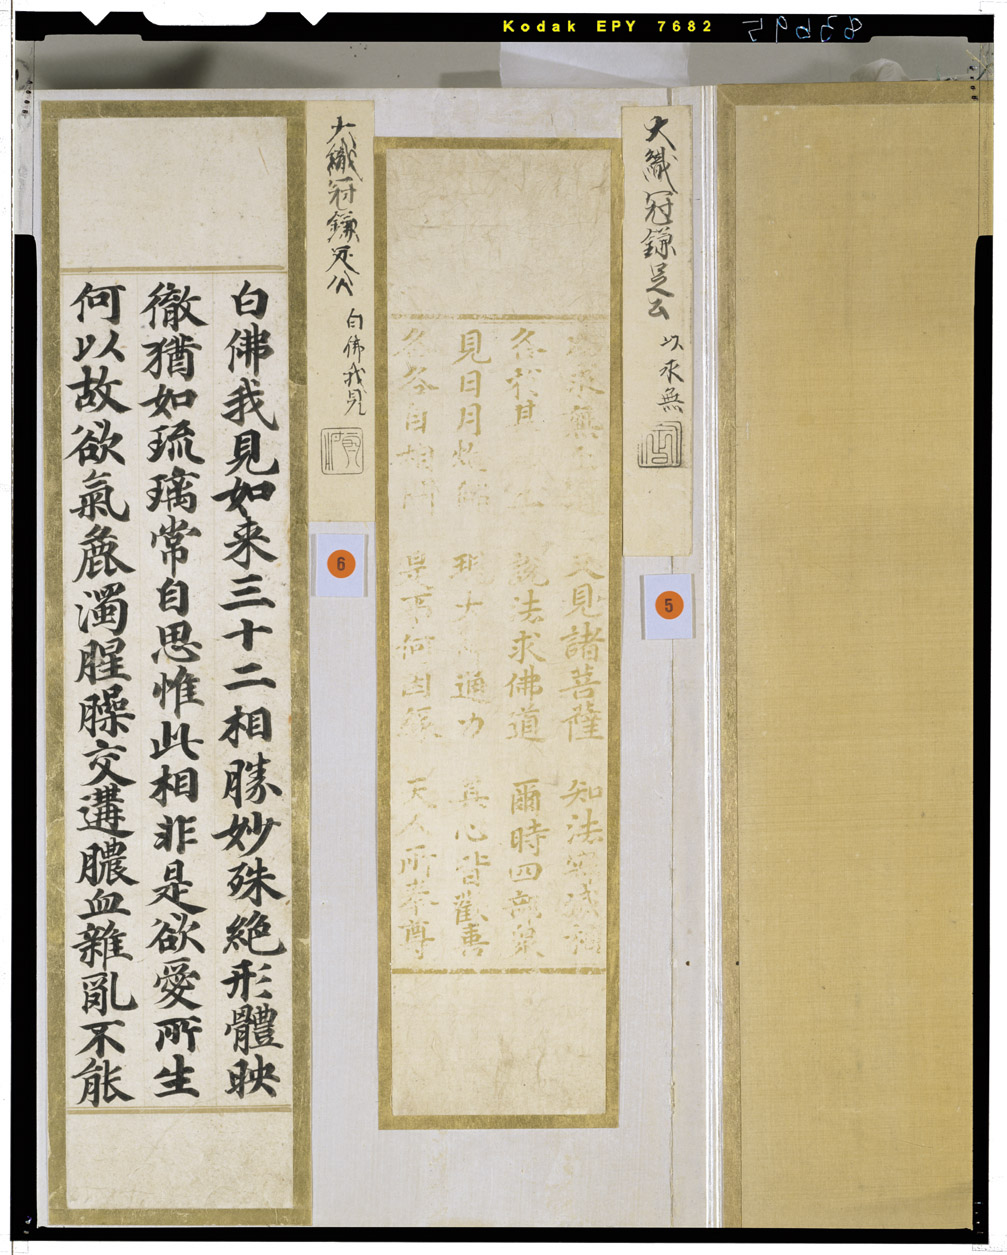 Kodak EPY 7682
大織冠鎌足公 以求無
5
以求無上道 又見諸菩薩 知法寂滅相
各於其國土 說法求佛道 爾時四部衆
見日月燈佛 現大神通力 其心皆歡喜
各各自相問 是事何因緣 天人所奉尊
大織冠鎌足公 白佛我見
6
白佛我見如来三十二相勝妙殊絶形體映
徹猶如琉璃常自思惟此相非是欲愛所生
何以故欲氣麁濁腥臊交遘膿血雜亂不能